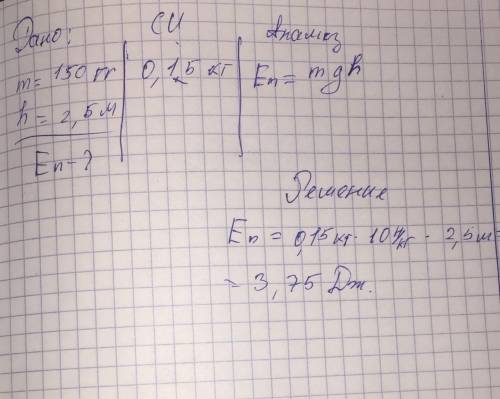 Дано: СИ Анализ
m = 150 гг 0,15 кг Eп = mgh
h = 2,5 м
Eп - ?
Решение
Eп = 0,15 кг · 10 Н/кг · 2,5 м =
= 3,75 Дж.